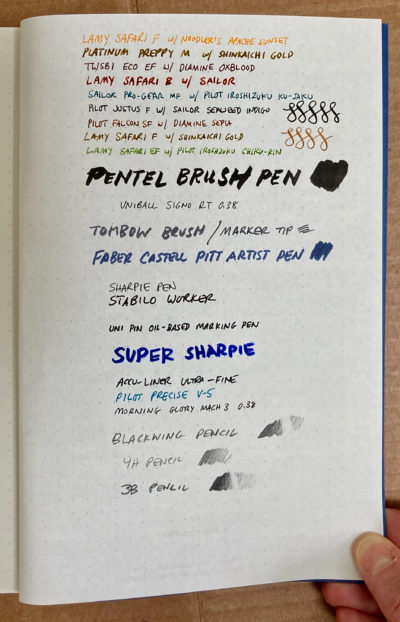 LAMY SAFARI F W/ NOODLER'S APACHE SUNSET
PLATINUM PREPPY M W/ SHINKAICHI GOLD
TWSBI ECO EF W/ DIAMINE OXBLOOD
LAMY SAFARI B W/ SAILOR
SAILOR PRO-GEAR MF W/ PILOT IROSHIZUKU KU-JAKU
PILOT JUSTUS F W/ SAILOR SEAWEED INDIGO
PILOT FALCON SF W/ DIAMINE SEPIA
LAMY SAFARI F W/ SHINKAICHI GOLD
LAMY SAFARI EF W/ PILOT IROSHIZUKU CHIKU-RIN
PENTEL BRUSH PEN
UNIBALL SIGNO RT 0.38
TOMBOW BRUSH / MARKER TIP
FABER CASTELL PITT ARTIST PEN
SHARPIE PEN
STABILO WORKER
UNI PIN OIL-BASED MARKING PEN
SUPER SHARPIE
ACCU-LINER ULTRA-FINE
PILOT PRECISE V-5
MORNING GLORY MACH 3 0.38
BLACKWING PENCIL
4H PENCIL
3B PENCIL